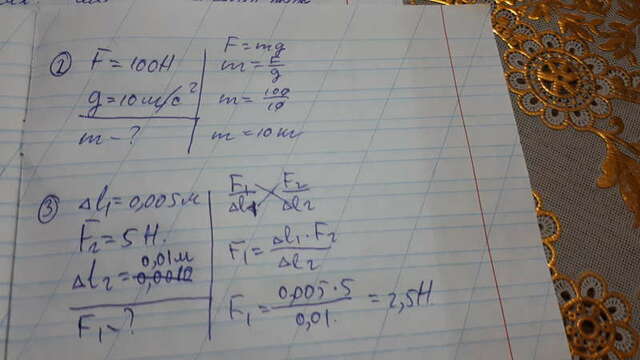 ② F = 100Н
g = 10 м/с²
m - ?
F = mg
m = F/g
m = 100/10
m = 10 кг
③ Δl₁ = 0,005 м
F₂ = 5 Н.
0,01 м
Δl₂ = 0,0012
F₁ - ?
F₁/Δl₁ F₂/Δl₂
F₁ = Δl₁·F₂/Δl₂
F₁ = 0,005·5/0,01. = 2,5Н